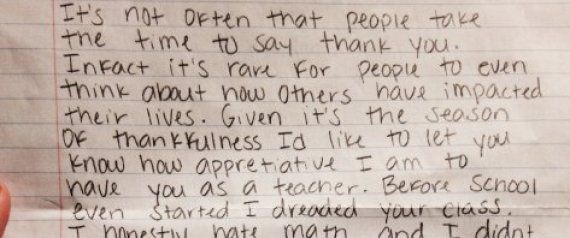 It's not often that people take
the time to say thank you.
Infact it's rare for people to even
think about how others have impacted
their lives. Given it's the season
of thankfulness I'd like to let you
know how appretiative I am to
have you as a teacher. Before school
even started I dreaded your class.
I honestly hate math and I didn't